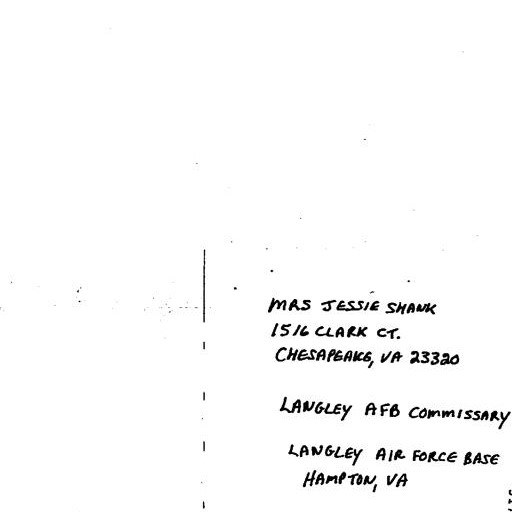 MRS JESSIE SHANK
1516 CLARK CT.
CHESAPEAKE, VA 23320
LANGLEY AFB COMMISSARY
LANGLEY AIR FORCE BASE
HAMPTON, VA